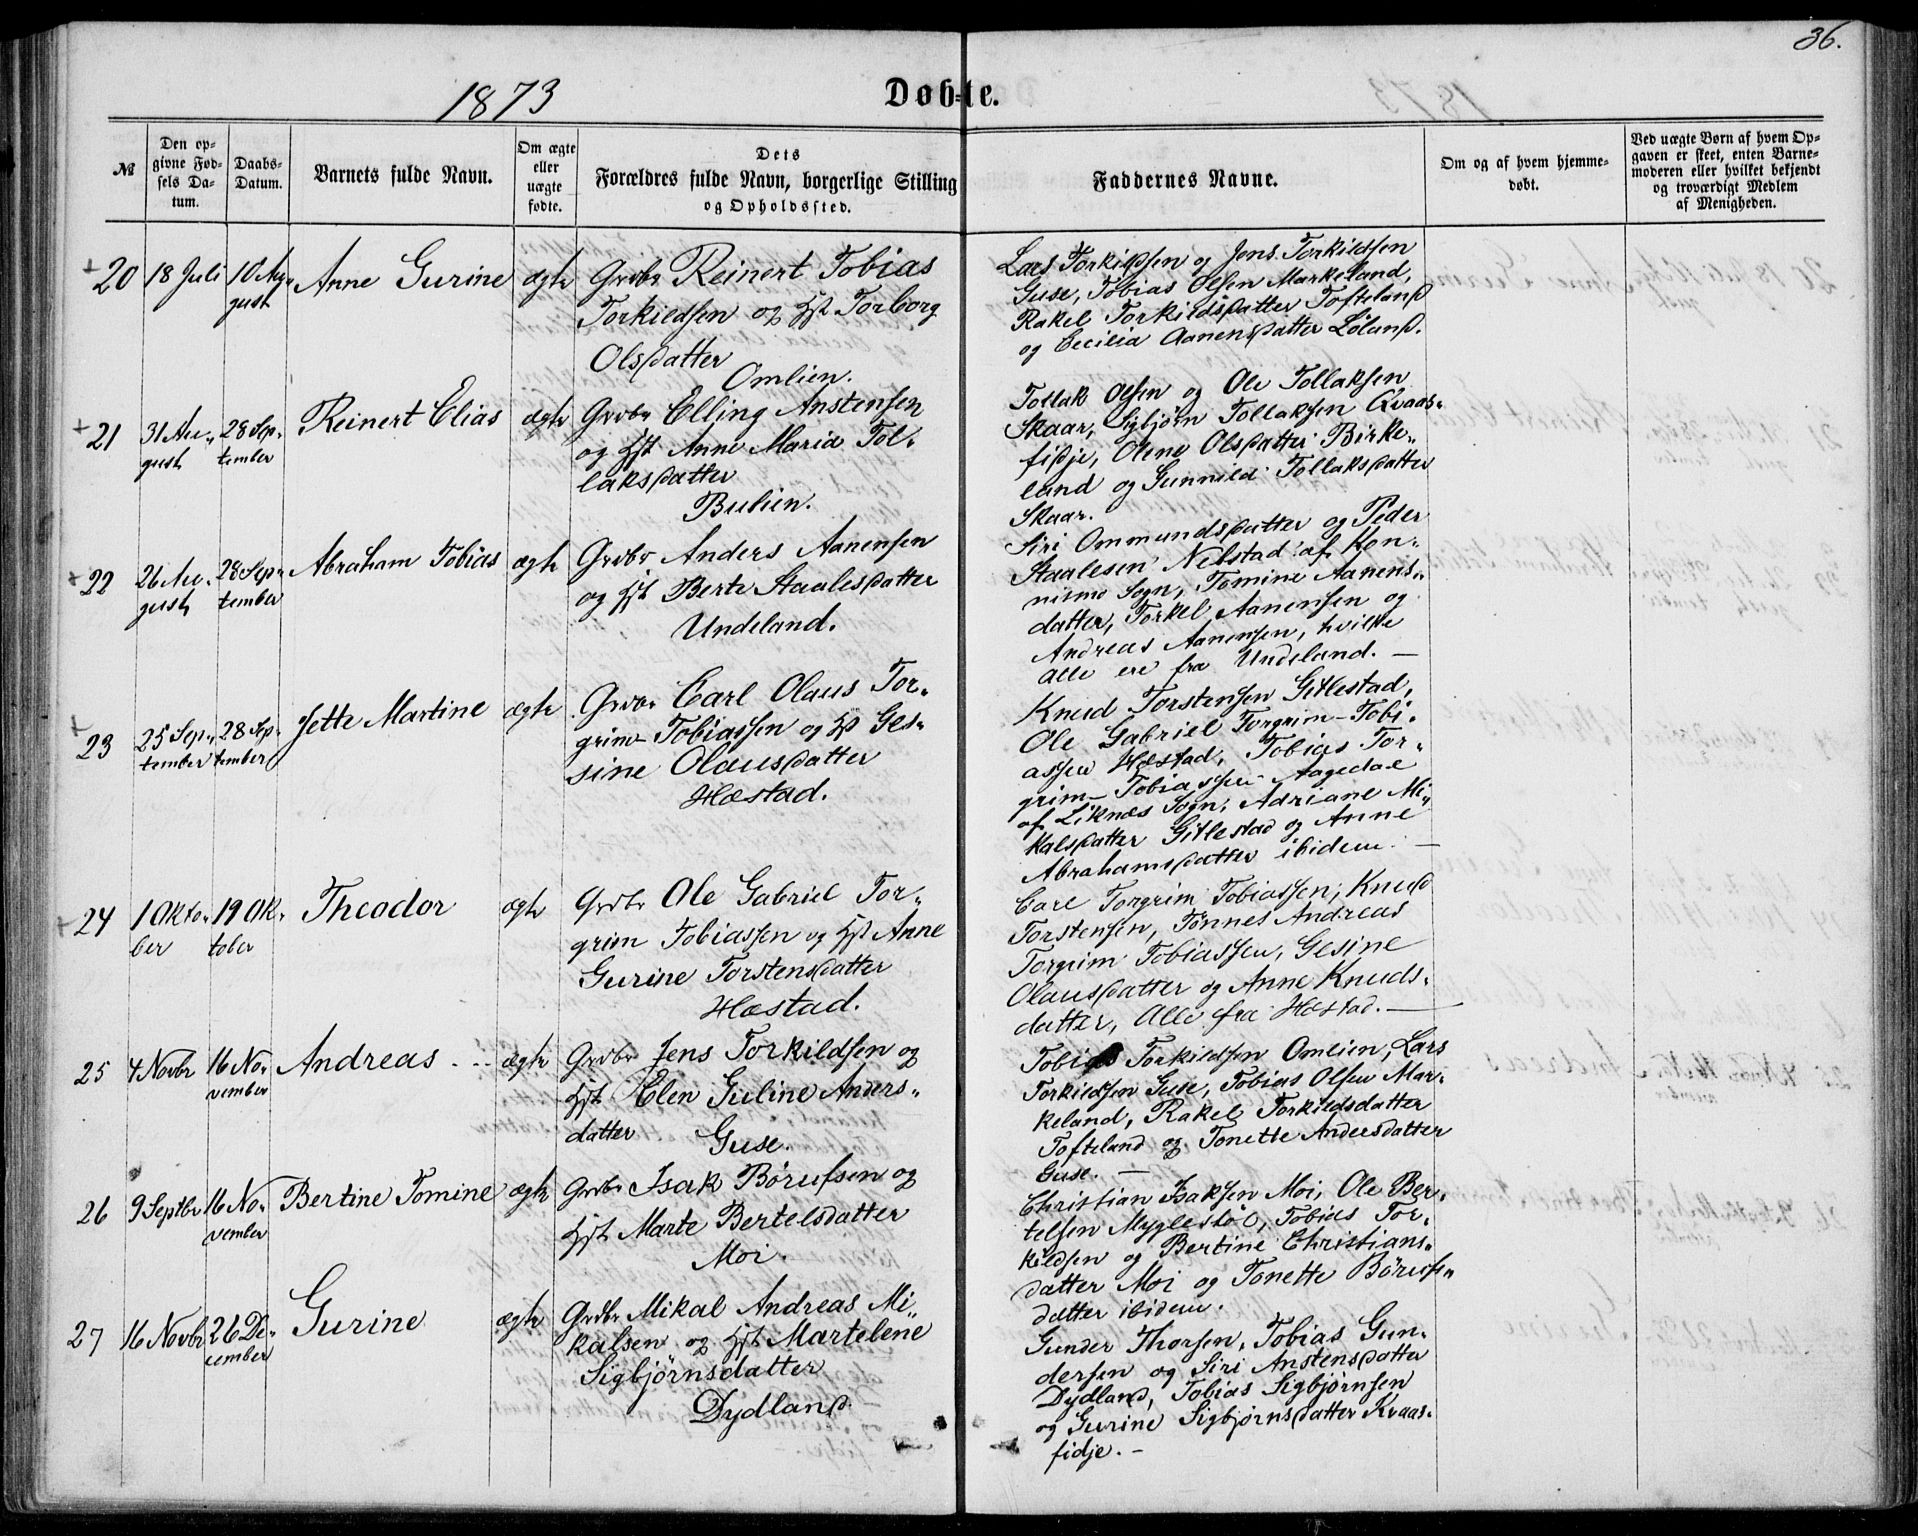 36.
1873
Døbte.
№
Den op-
givne Fød-
sels Da-
tum.
Daabs-
Datum.
Barnets fulde Navn.
Om ægte
eller
uægte
fødte.
Dets
Forældres fulde Navn, borgerlige Stilling
og Opholdssted.
Faddernes Navne.
Om og af hvem hjemme-
døbt.
Ved uægte Børn af hvem Op-
gaven er skeet, enten Barne-
moderen eller hvilket bekjendt
og troværdigt Medlem
af Menigheden.
20
18 Juli
10 Au-
gust
Anne Gurine
ægte
Grdbr Reinert Tobias
Torkildsen og Hst Torborg
Olsdatter
Omlien.
Lars Torkildsen og Jens Torkildsen
Guse, Tobias Olsen Markeland,
Rakel Torkildsdatter Tofteland
og Cecilia Aanensdatter Løland.
21
31 Au-
gust
28 Sep-
tember
Reinert Elias
ægte
Grdbr Elling Anstensen
og Hst Anne Maria Tol-
laksdatter
Bulien.
Tollak Olsen og Ole Tollaksen
Skaar, Sigbjørn Tollaksen Kvaas-
fidje, Olene Olsdatter Birke-
land og Gunnild Tollaksdatter
Skaar.
22
26 Au-
gust
28 Sep-
tember
Abraham Tobias
ægte
Grdbr Anders Aanensen
og Hst Berte Staalesdatter
Undeland.
Siri Ommundsdatter og Peder
Staalesen Nebstad af Kon-
nismo Sogn, Tomine Aanens-
datter, Torkel Aanensen og
Andreas Aanensen, hvilke
alle ere fra Undeland. —
23
25 Sep-
tember
28 Sep-
tember
Jette Martine
ægte
Grdbr Carl Olaus Tor-
grim-Tobiassen og Hst Ges-
sine Olausdatter
Hæstad.
Knud Torstensen Gitlestad,
Ole Gabriel Torgrim-Tobi-
assen Hæstad, Tobias Tor-
grim-Tobiassen Aagedal
af Liknæs Sogn, Adriane Mi-
kalsdatter Gitlestad og Anne
Abrahamsdatter ibidem. —
24
1 Okto-
ber
19 Ok-
tober
Theodor
ægte
Grdbr Ole Gabriel Tor-
grim Tobiassen og Hst Anne
Gurine Torstensdatter
Hæstad.
Carl Torgrim Tobiassen, Knud
Torstensen, Tønnes Andreas
Torgrim Tobiassen, Gesine
Olausdatter og Anne Knuds-
datter, Alle fra Hæstad. —
25
4 Novbr
16 No-
vember
Andreas
ægte
Grdbr Jens Torkildsen og
Hst Elen Guline Anders-
datter
Guse.
Tobias Torkildsen Omlien, Lars
Torkildsen Guse, Tobias Olsen Mar-
keland, Rakel Torkildsdatter
Tofteland og Tonette Andersdatter
Guse. —
26
9 Septbr
16 No-
vember
Bertine Tomine
ægte
Grdbr Isak Børufsen og
Hst Marte Bertelsdatter
Moi.
Christian Isaksen Moi, Ole Ber-
telsen Myglestøl, Tobias Tor-
kildsen og Bertine Christians-
datter Moi og Tonette Børufs-
datter ibidem.
27
16 Novbr
26 De-
cember
Gurine
ægte
Grdbr Mikal Andreas Mi-
kalsen og Hst Martelene
Sigbjørnsdatter
Dydland
Gunder Thorsen, Tobias Gun-
dersen og Siri Anstensdatter
Dydland, Tobias Sigbjørnsen
og Gurine Sigbjørnsdatter Kvaas-
fidje. —